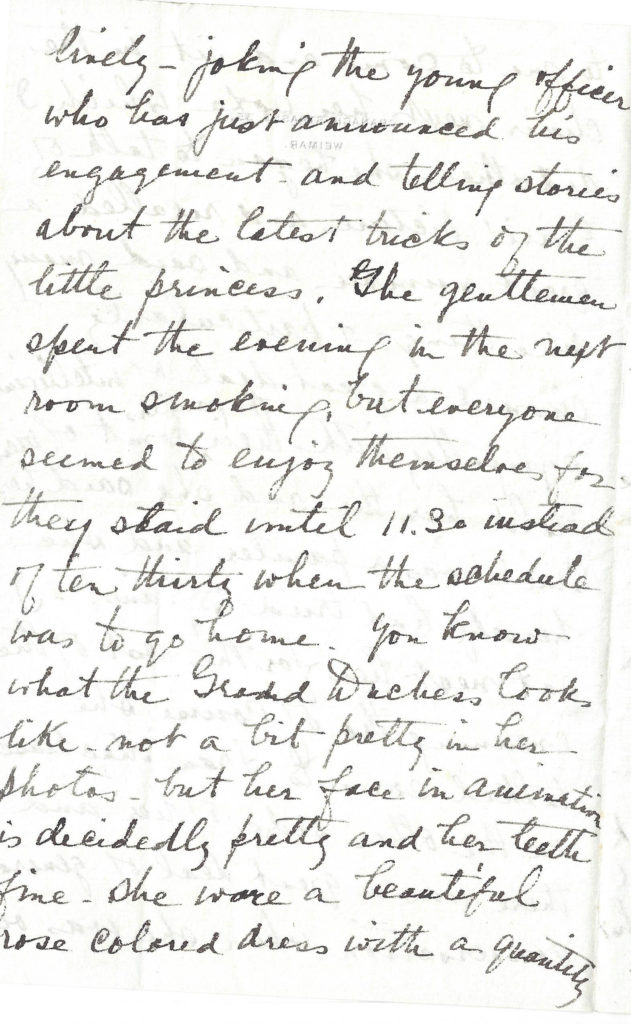 lively - joking the young officer
who has just announced his
WEIMAR.
engagement - and telling stories
about the latest tricks of the
little princess. The gentlemen
spent the evening in the next
room smoking, but everyone
seemed to enjoy themselves for
they staid until 11.30 instead
of ten thirty when the schedule
was to go home. You know
what the Grand Duchess looks
like - not a bit pretty in her
photos - but her face in animation
is decidedly pretty and her teeth
fine - She wore a beautiful
rose colored dress with a quantity